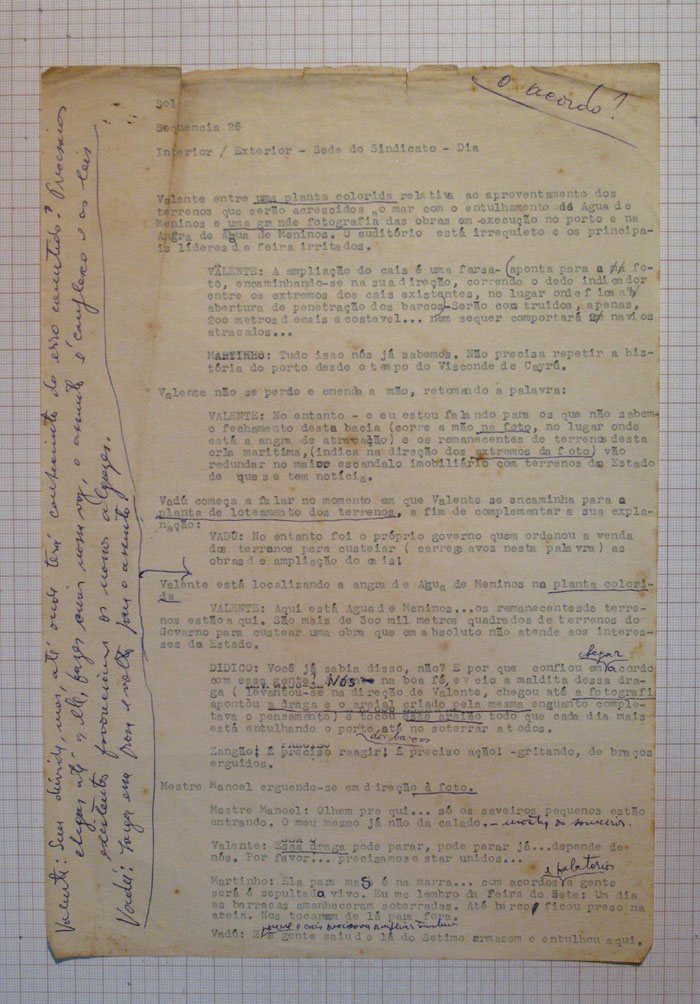 o acordo!
Sol
Sequencia 26
Interior / Exterior - Sede do Sindicato - Dia
Valente entre uma planta colorida relativa ao aproventamento dos
terrenos que serão acrescidos o mar com o entulhamento de Agua de
Meninos e uma grande fotografia das obras em execução no porto e na
Angra de Agua de Meninos. O auditório está irrequieto e os principa-
is líderes da feira irritados.
VALENTE: A ampliação do cais é uma farsa- (aponta para a fo-
to, encaminhando-se na sua direção, correndo o dedo indicador
entre os extremos dos cais existentes, no lugar onde fica a
abertura de penetração dos barcos-Serão construidos, apenas,
200 metros de cais acostavel... nem sequer comportará navios
atracados...
MARTINHO: Tudo isso nós já sabemos. Não precisa repetir a his-
tória do porto desde o tempo do Visconde de Cayrú.
Valente não se perde e emenda a mão, retomando a palavra:
VALENTE: No entanto - e eu estou falando para os que não sabem-
o fechamento desta bacia (corre a mão na foto, no lugar onde
está a angra de atracação) e os remanecentes de terreno desta
orla maritima, (indica na direção dos extremos da foto) vão
redundar no maior escandalo imobiliário com terrenos do Estado
de que se tem notícia.
Vadú começa a falar no momento em que Valente se encaminha para a
planta de loteamento dos terrenos, a fim de complementar a sua expla-
nação:
VADÚ: No entanto foi o próprio governo quem ordenou a venda
dos terrenos para custeiar ( carrega voz nesta palavra) as
obras de ampliação do cais!
Valente está localizando a angra de Agua de Meninos na planta colori-
da
VALENTE: Aqui está Agua de Meninos...os remanecentes de terre-
nos estão aqui. São mais de 300 mil metros quadrados de terrenos do
Governo para custear uma obra que em absoluto não atende aos interes-
ses do Estado.
DIDICO: Você já sabia disso, não? E por que confiou em acordo
com essa gente? Nós na boa fé, e veio a maldita dessa dra-
ga ( levantou-se na direção de Valente, chegou até a fotografi
apontou a draga e o areial criado pela mesma enquanto comple-
tava o pensamento) e tocou esse areião todo que cada dia mais
está entulhando o porto até no soterrar a todos.
Zangão: É preciso reagir! É preciso ação! -gritando, de braços
erguidos.
Mestre Manoel erguendo-se em direção à foto.
Mestre Manoel: Olhem pra qui... só os saveiros pequenos estão
entrando. O meu mesmo já não da calado.
Valente: Essa draga pode parar, pode parar já...depende de
nós. Por favor... precisamos estar unidos...
e palatorio
Martinho: Ela para mas é na marra... com acordos a gente
será é sepultado vivo. Eu me lembro da Feira do Sete: Um dia
as barracas amanheceram soterradas. Até barco ficou preso na
areia. Nos tocaram de lá pam fora.
Vadú: E a gente saiu de lá do Setimo armazem e entulhou aqui.
Valente: Sem dúvida, mas, até onde terá conhecimento do erro cometido? Precisamos
chegar até êle, fazer ouvir nossa voz, o assunto é complexo e as leis
existentes favorecem os nossos algozes.
Vadú: